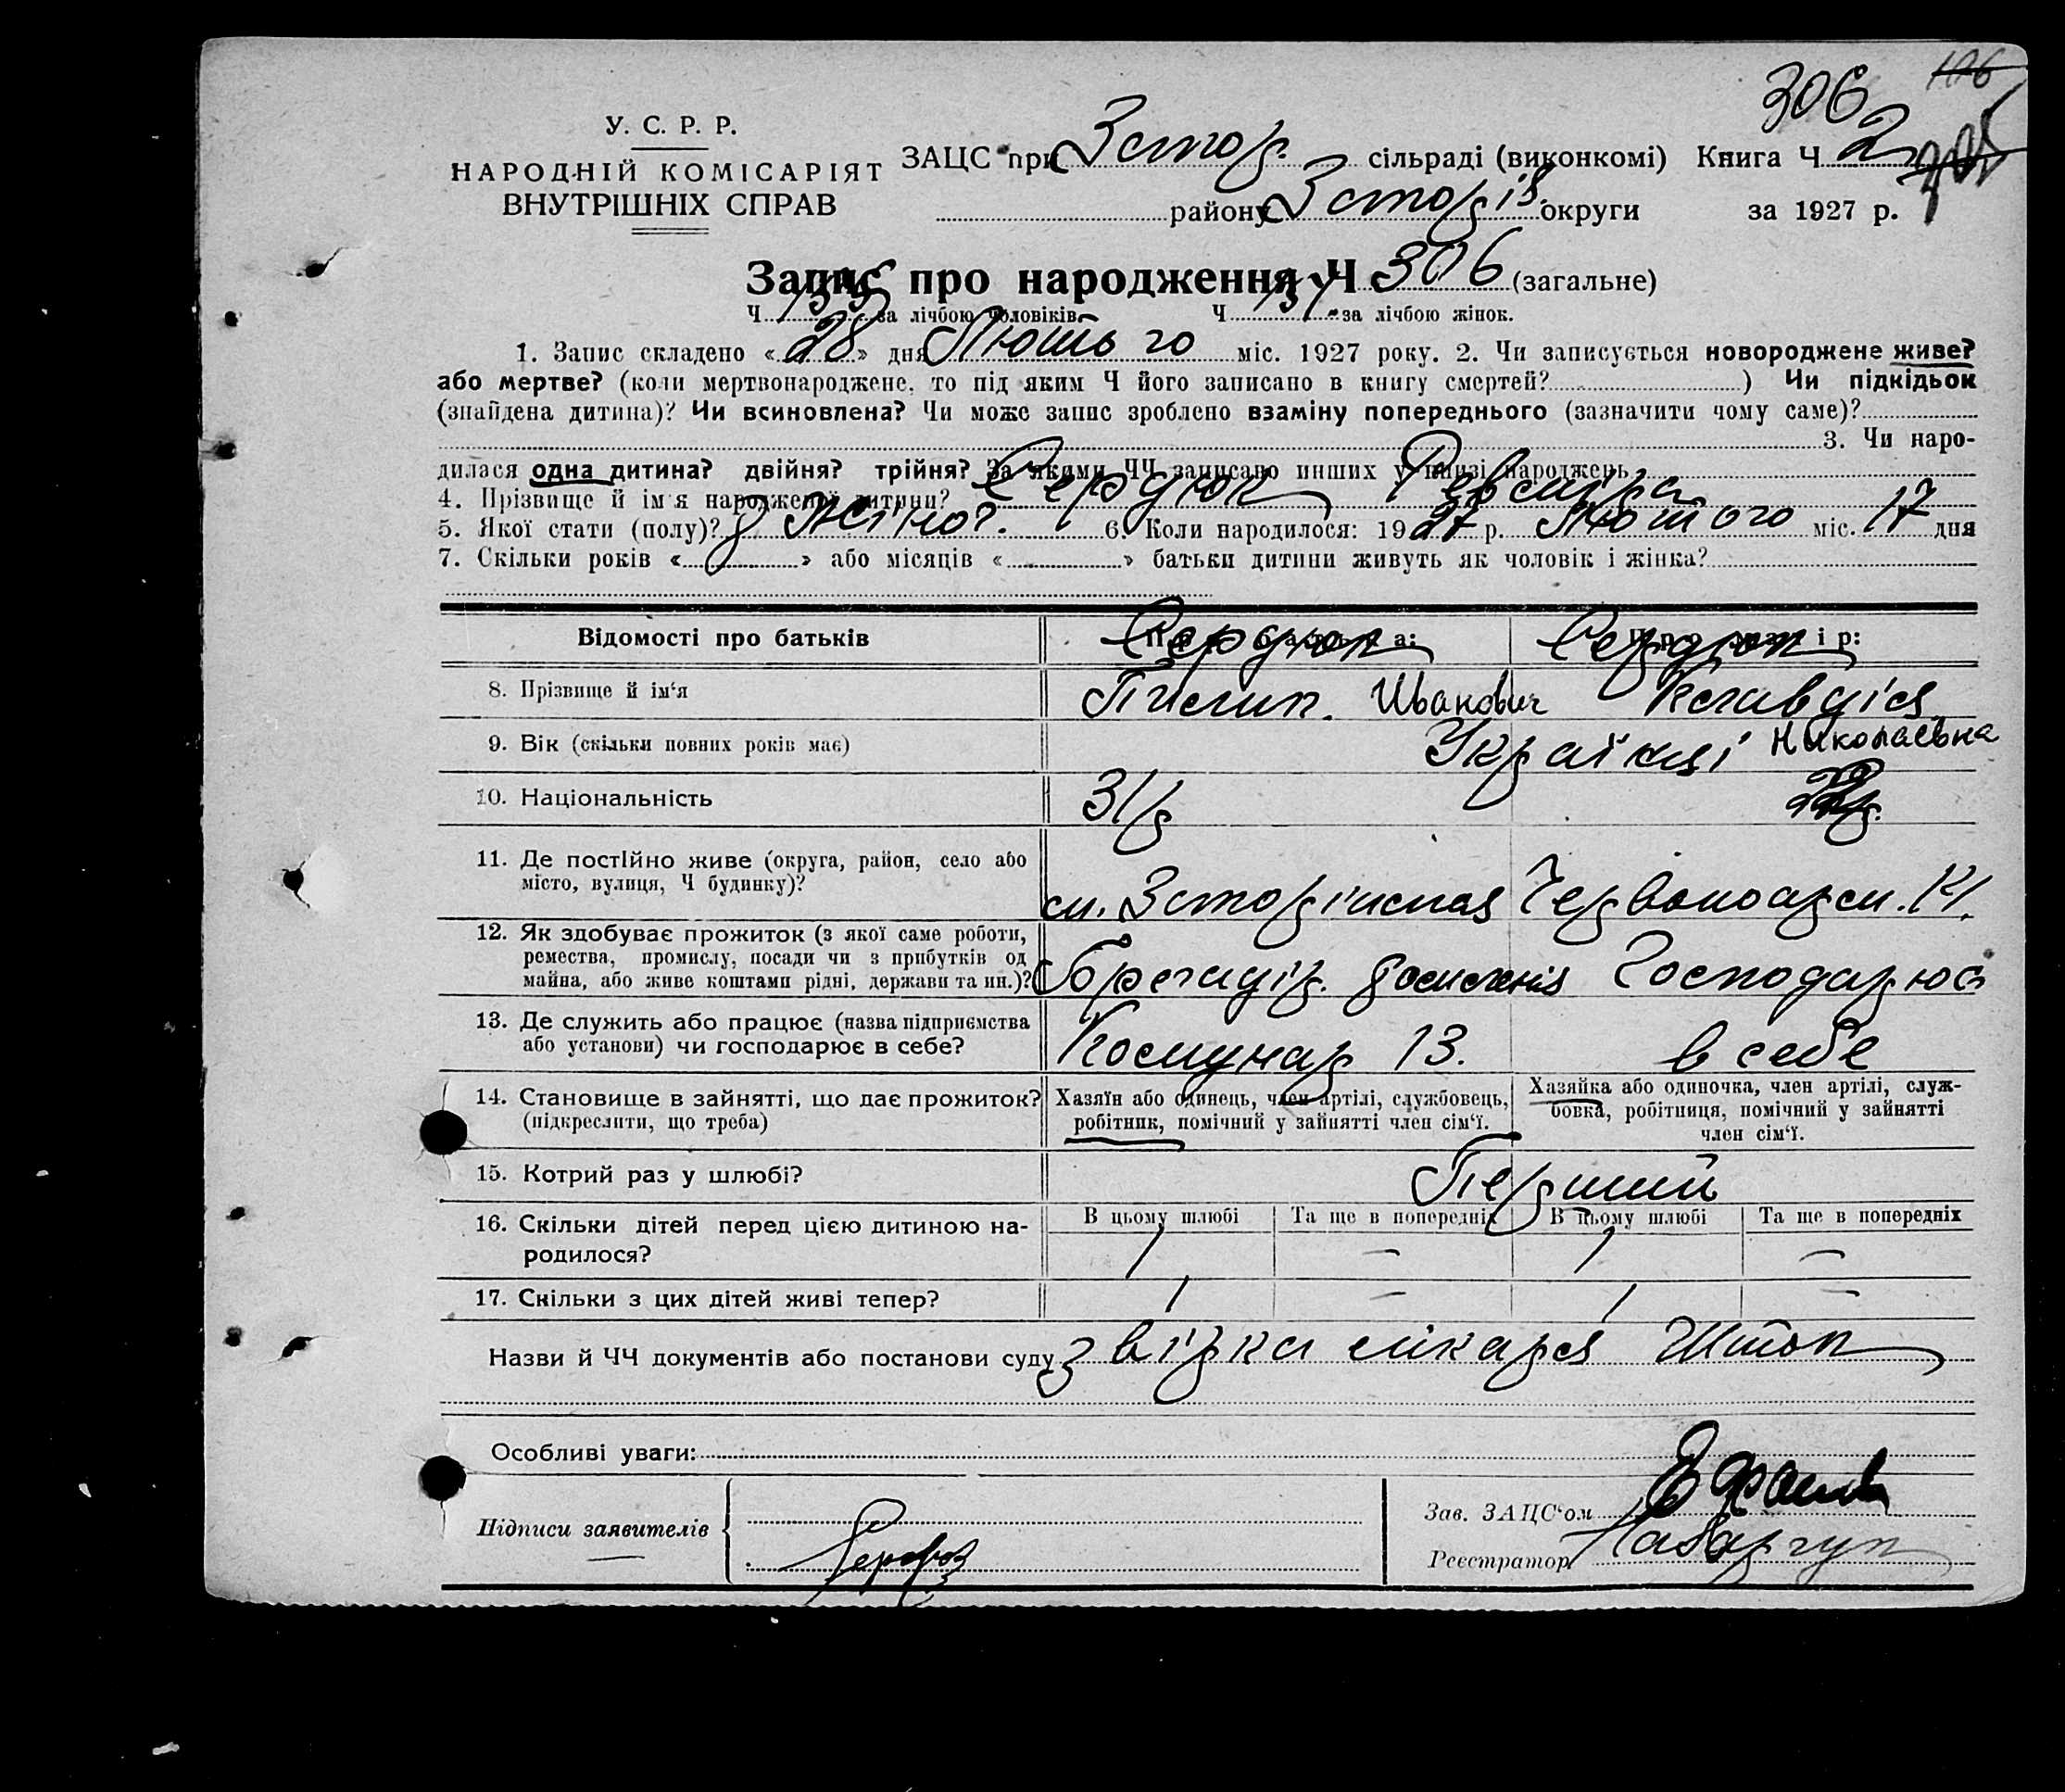 306 106
У. С. Р. Р.
НАРОДНІЙ КОМІСАРІЯТ
ВНУТРІШНІХ СПРАВ
ЗАЦС при Зстор. сільраді (виконкомі) Книга Ч 2
району Зсторів. округи за 1927 р.
Запис про народження Ч 306 (загальне)
Ч за лічбою чоловіків Ч за лічбою жінок.
1. Запис складено « 28 » дня Лютого міс. 1927 року. 2. Чи записується новороджене живе?
або мертве? (коли мертвонароджене, то під яким Ч його записано в книгу смертей? ) Чи підкідьок
(знайдена дитина)? Чи всиновлена? Чи може запис зроблено взаміну попереднього (зазначити чому саме)?
3. Чи наро-
дилася одна дитина? двійня? трійня? За якими ЧЧ записано инших у книзі народжень
4. Прізвище й ім'я народженої дитини? Сердюк Ревмира
5. Якої стати (полу)? Жіноч. 6. Коли народилося: 1927 р. Лютого міс. 17 дня
7. Скільки років « » або місяців « » батьки дитини живуть як чоловік і жінка?
Відомості про батьків Про батька: Про матір:
Сердюк Сердюк
8. Прізвище й ім'я Пилип. Иванович Клавдія
9. Вік (скільки повних років має) Українці Николаевна
10. Національність 31 р 22 р.
11. Де постійно живе (округа, район, село або
місто, вулиця, Ч будинку)? Червоноарм.
12. Як здобуває прожиток (з якої саме роботи,
ремества, промислу, посади чи з прибутків од
майна, або живе коштами рідні, держави та ин.)? Бригадір. Господарює
13. Де служить або працює (назва підприємства
або установи) чи господарює в себе? Комунар 13. в себе
14. Становище в зайнятті, що дає прожиток? Хазяїн або одинець, член артілі, службовець, Хазяйка або одиночка, член артілі, служ-
(підкреслити, що треба) робітник, помічний у зайнятті член сім'ї. бовка, робітниця, помічний у зайнятті
член сім'ї.
15. Котрий раз у шлюбі? Перший
16. Скільки дітей перед цією дитиною на- В цьому шлюбі Та ще в попередніх В цьому шлюбі Та ще в попередніх
родилося? 1 — 1 —
17. Скільки з цих дітей живі тепер? 1 — 1 —
Назви й ЧЧ документів або постанови суду звірка лікаря
Особливі уваги:
Підписи заявителів
Зав. ЗАЦС'ом
Реєстратор